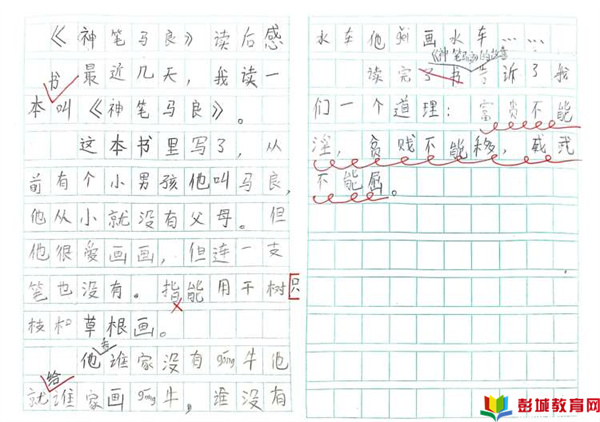 《神笔马良》读后感
书
最近几天，我读一
本叫《神笔马良》。
这本书里写了，从
前有个小男孩他叫马良，
他从小就没有父母。但
他很爱画画，但连一支
笔也没有。指能用干树
只
枝和草根画。
他谁家没有gēng牛他
给
就谁家画gēng牛，谁没有
水车他就画水车……
《神笔马良》的故事
读完了书告诉了我
们一个道理：富贵不能
淫，贫贱不能移，威武
不能屈。
彭城教育网